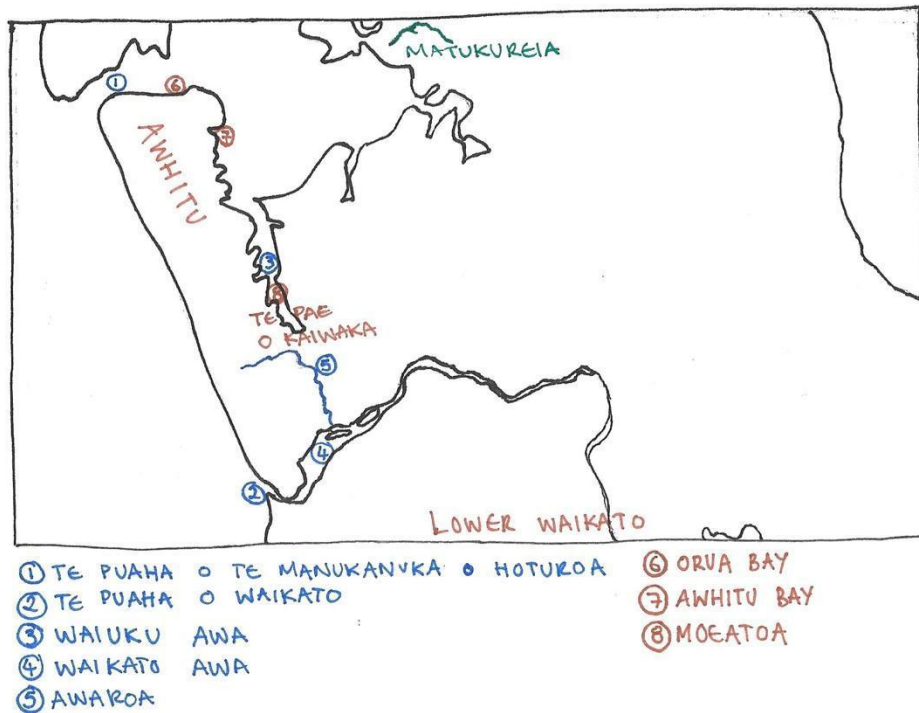 MATUKUREIA
①
⑥
⑦
AWHITU
③
⑧
TE PAE
O KAIWAKA
⑤
④
②
LOWER WAIKATO
① TE PUAHA O TE MANUKANUKA O HOTUROA
② TE PUAHA O WAIKATO
③ WAIUKU AWA
④ WAIKATO AWA
⑤ AWAROA
⑥ ORUA BAY
⑦ AWHITU BAY
⑧ MOEATOA